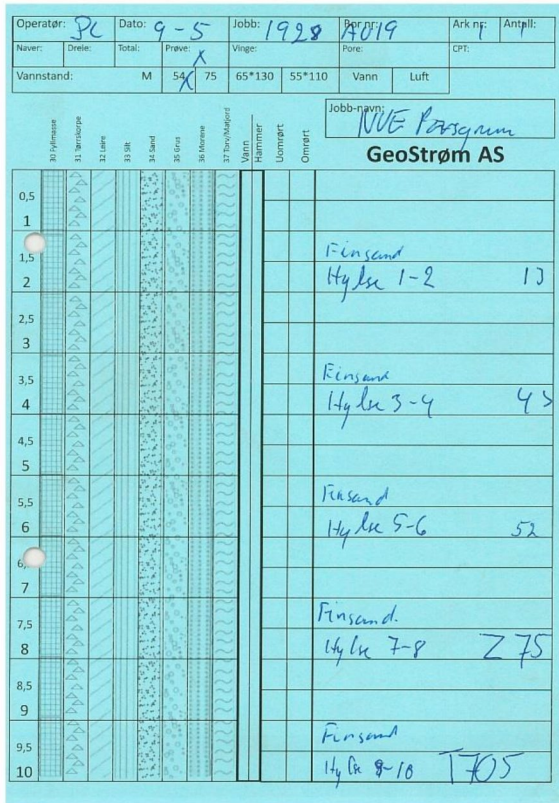 Operatør: PL Dato: 9-5 Jobb: 1928 Bor nr: A019 Ark nr: 1 Antall: 1
Naver: Dreie: Total: Prøve: X Vinge: Pore: CPT:
Vannstand: M 54 X 75 65*130 55*110 Vann Luft
Jobb-navn: NVE Porsgrunn
30 Fyllmasse 31 Tørrskorpe 32 Leire 33 Silt 34 Sand 35 Grus 36 Morene 37 Torv/Matjord Vann Hammer Uomrørt Omrørt
GeoStrøm AS
0,5
1
1,5 Finsand
2 Hylse 1-2
2,5
3
3,5 Finsand
4 Hylse 3-4
4,5
5
5,5 Finsand
6 Hylse 5-6 52
6,
7
7,5 Finsand.
8 Hylse 7-8 Z75
8,5
9
9,5 Finsand
10 Hylse 9-10 T705